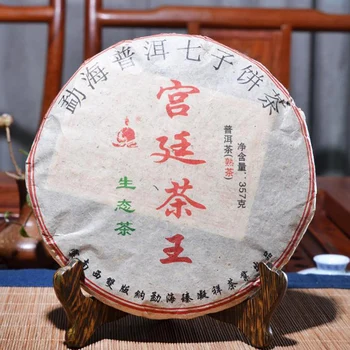 勐海普洱七子饼茶
宫廷茶王
生态茶
普洱茶(熟茶)
净含量:357克
西雙版納勐海臻凝祥茶業